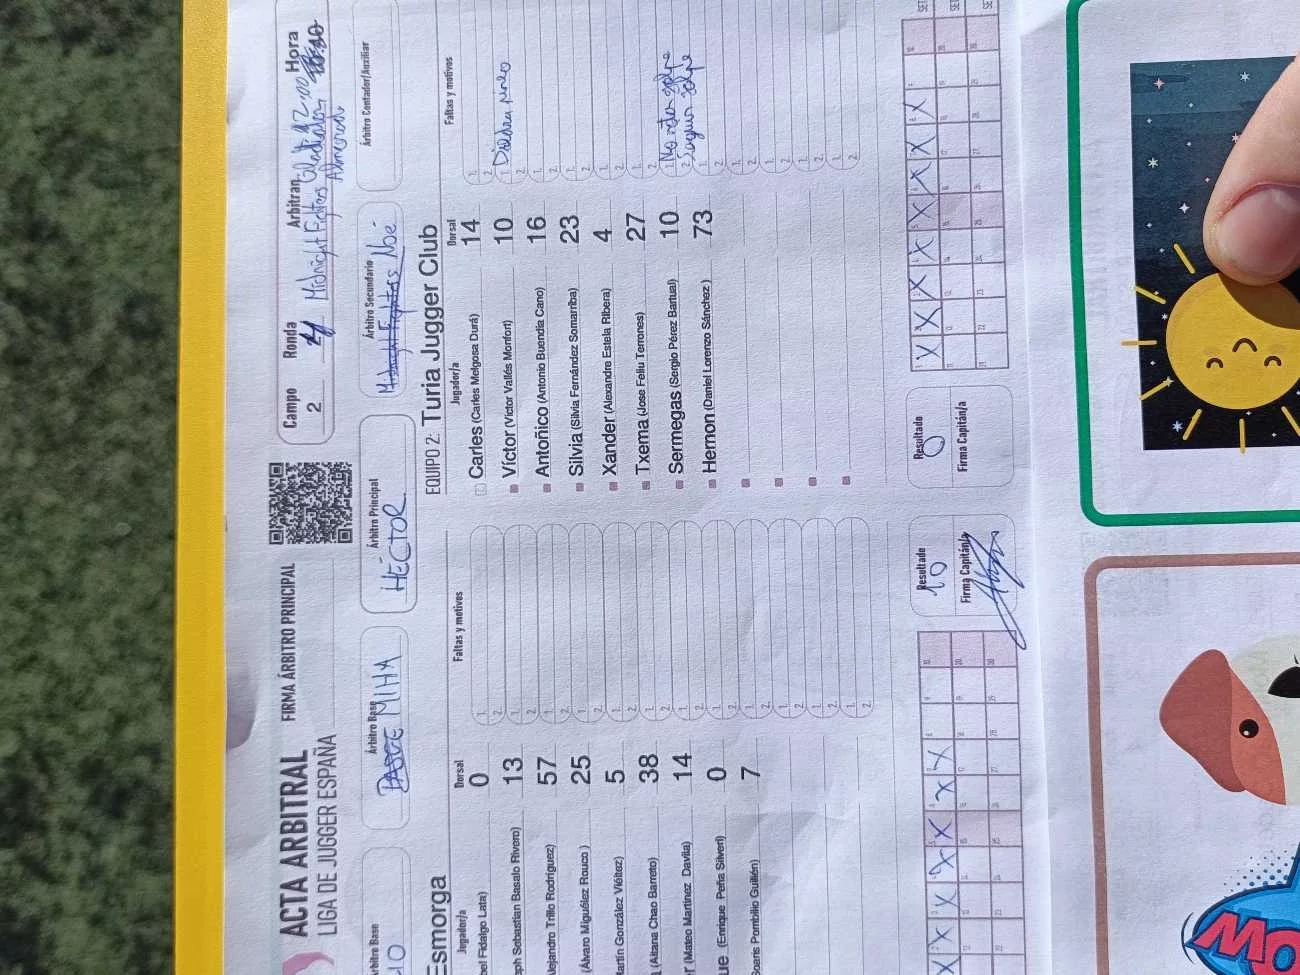 ACTA ARBITRAL
LIGA DE JUGGER ESPAÑA
FIRMA ÁRBITRO PRINCIPAL
Campo
2
Ronda
4
Arbitran
Midnight Fighters
Hora
12:00
Árbitro Base
Árbitro Base
MIHA
Árbitro Principal
HÉCTOR
Árbitro Secundario
Noé
Árbitro Contador/Auxiliar
Esmorga
Jugador/a Dorsal Faltas y motivos
bel Fidalgo Lata) 0
ph Sebastian Basalo Rivero) 13
lejandro Trillo Rodríguez) 57
(Álvaro Miguélez Rouco) 25
artín González Viéitez) 5
(Aitana Chao Barreto) 38
r (Mateo Martínez Davila) 14
ue (Enrique Peña Silveri) 0
Soaris Pombilio Guillén) 7
Resultado
10
Firma Capitán/a
EQUIPO 2: Turia Jugger Club
Jugador/a Dorsal Faltas y motivos
Carles (Carles Melgosa Durá) 14
Víctor (Víctor Vallés Monfort) 10
Antoñico (Antonio Buendía Cano) 16
Silvia (Silvia Fernández Somarriba) 23
Xander (Alexandre Estela Ribera) 4
Txema (Jose Feliu Terrones) 27
Sermegas (Sergio Pérez Bartual) 10
Hernon (Daniel Lorenzo Sánchez) 73
Resultado
0
Firma Capitán/a